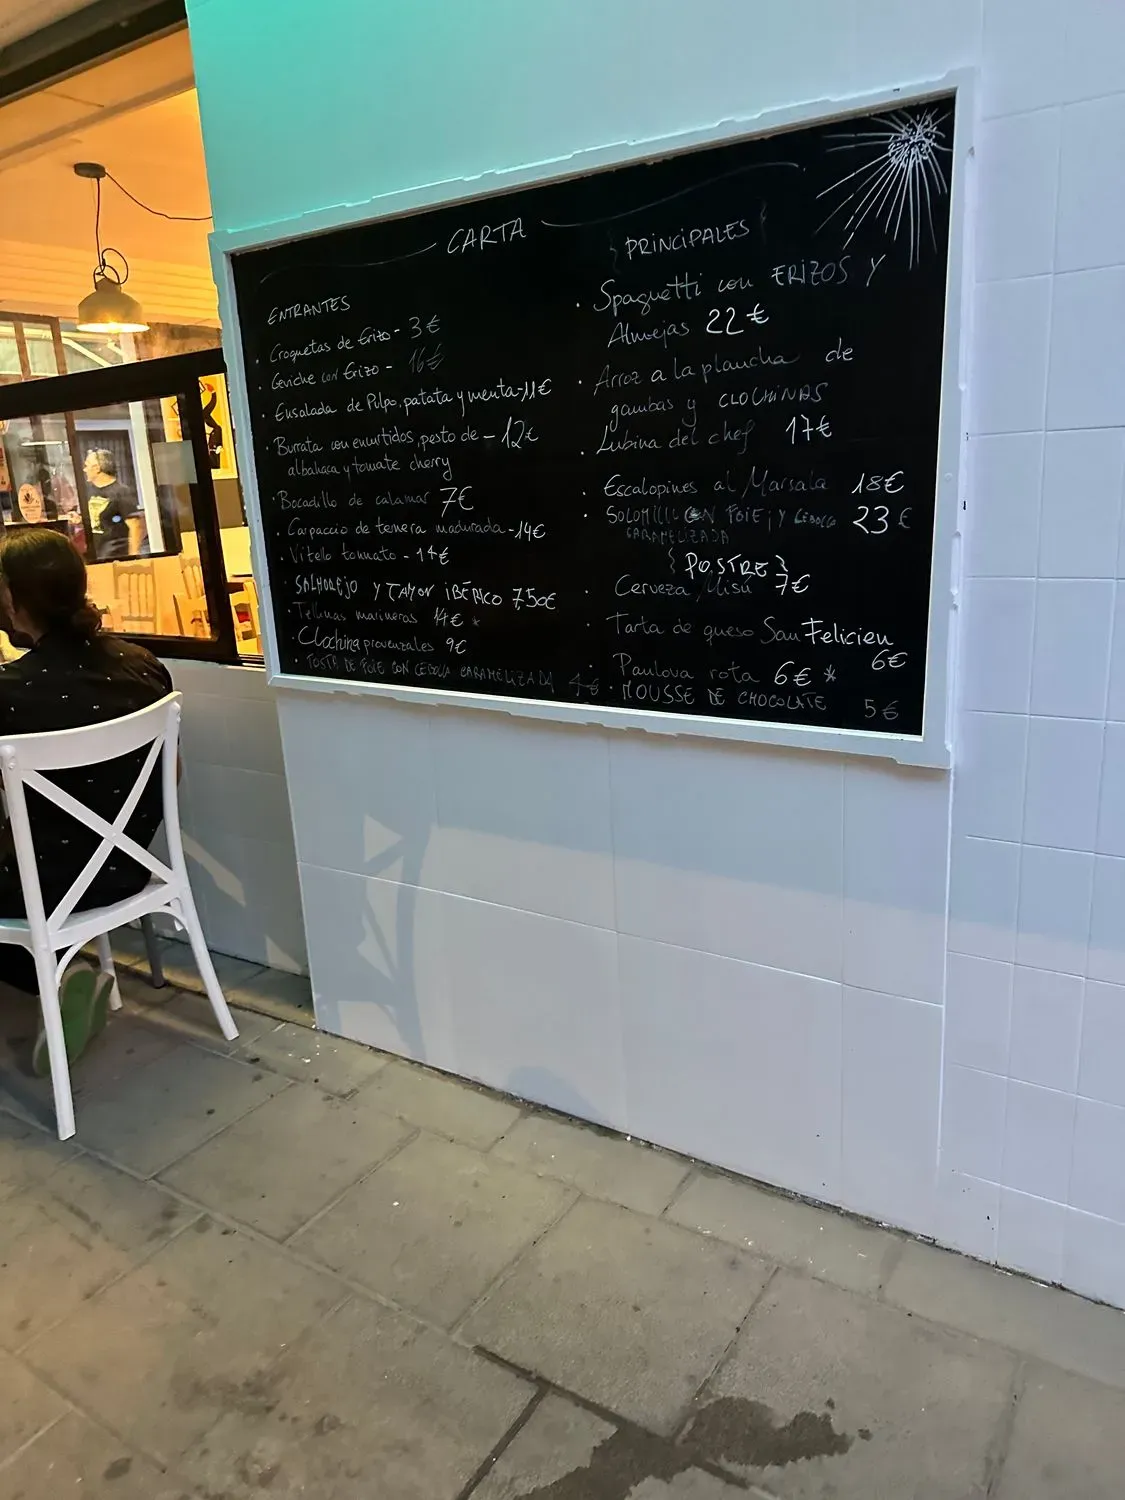 CARTA
ENTRANTES
· Croquetas de Erizo - 3€
· Ceviche con Erizo - 16€
· Ensalada de Pulpo, patata y menta - 11€
· Burrata con encurtidos, pesto de - 12€
albahaca y tomate cherry
· Bocadillo de calamar 7€
· Carpaccio de ternera madurada - 14€
· Vitello tonnato - 14€
· SALMOREJO Y JAMON IBÉRICO 7,50€
· Tellinas marineras 14€ *
· Clochina provenzales 9€
· TOSTA DE FOIE CON CEBOLLA CARAMELIZADA 4€
{ PRINCIPALES }
· Spaguetti con ERIZOS Y
Almejas 22€
· Arroz a la plancha de
gambas y CLOCHINAS
· Lubina del chef 17€
· Escalopines al Marsala 18€
· SOLOMILLO CON FOIE Y CEBOLLA 23€
CARAMELIZADA
{ POSTRE }
· Cerveza Misú 7€
· Tarta de queso San Felicien
6€
· Paulova rota 6€ *
· MOUSSE DE CHOCOLATE 5€